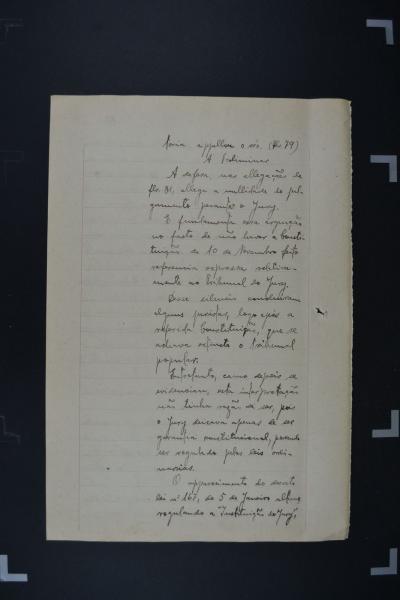 appellou o réo. (fls. 79)
A Preliminar
A defesa, nas allegações de
fls. 81, allega a nullidade do jul-
gamento perante o Jury.
E fundamenta essa arguição
no facto de não haver a Consti-
tuição de 10 de Novembro feito
referencia expressa relativa-
mente ao Tribunal do Jury.
Desse silencio concluiram
alguns juristas, logo após a
referida Constituição, que se
achava extincto o Tribunal
popular.
Entretanto, como depois se
evidenciou, esta interpretação
não tinha razão de ser, pois
o Jury deixava apenas de ser
garantia constitucional, podendo
ser regulado pelas leis ordi-
narias.
O apparecimento do decreto
lei nº 167, de 5 de Janeiro
regulando a "Instituição do Jury",